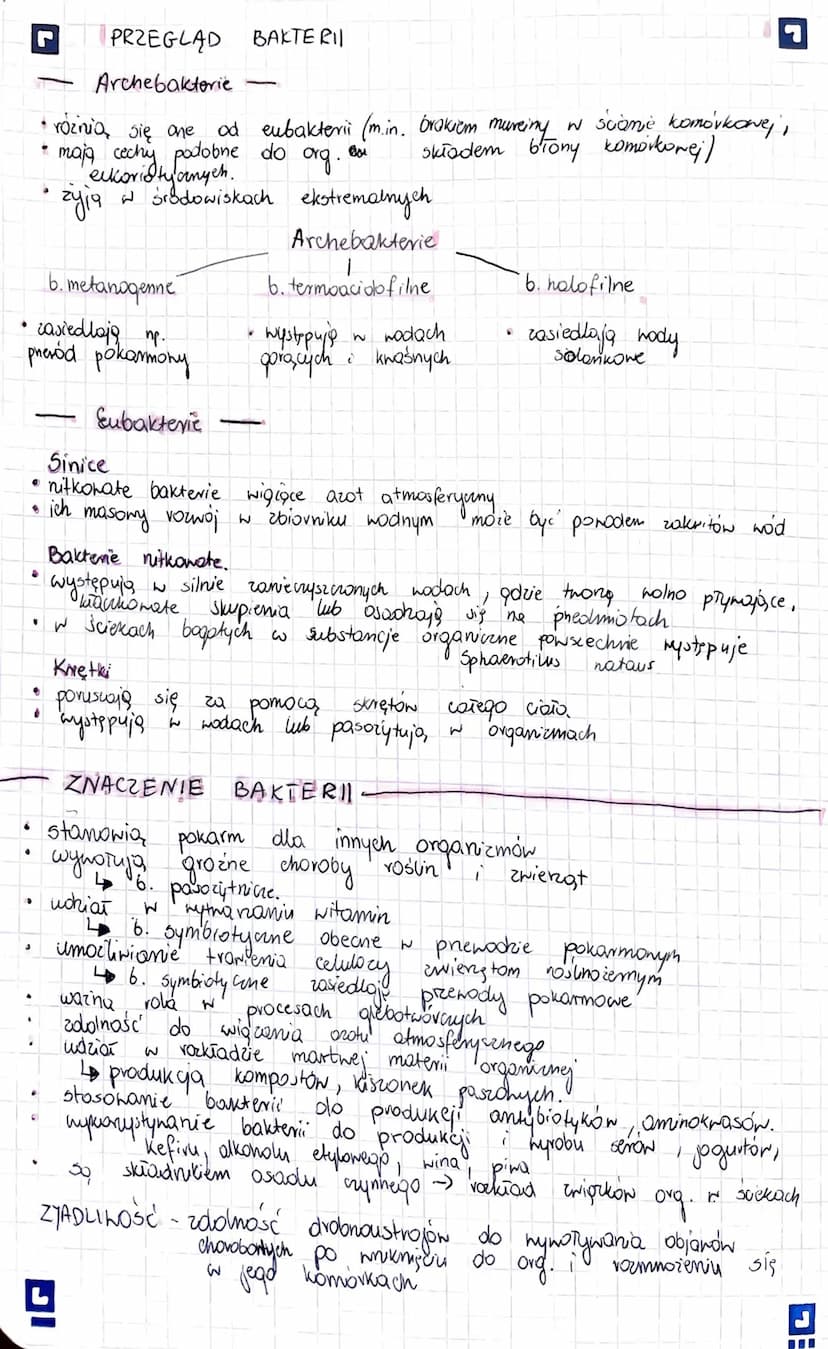 PRZEGLĄD BAKTERII
Archebakterie
• różnią się one od eubakterii (m.in. brakiem mureiny w ścianie komórkowej,
składem błony komórkowej)
• mają cechy podobne do org.
eukariotycznych.
• żyją w środowiskach ekstremalnych
Archebakterie
b. metanogenne b. termoacidofilne b. halofilne
• zasiedlają np. • występują w wodach • zasiedlają wody
przewód pokarmowy gorących i kwaśnych solankowe
Eubakterie
Sinice
• nitkowate bakterie wiążące azot atmosferyczny
• ich masowy rozwój w zbiorniku wodnym może być powodem zakwitów wód
Bakterie nitkowate.
• występują w silnie zanieczyszczonych wodach, gdzie tworzą wolno pływające,
kłaczkowate skupienia lub osadzają się na przedmiotach
• w ściekach bogatych w substancje organiczne powszechnie występuje
Sphaerotilus natans
Krętki
• poruszają się za pomocą skrętów całego ciała.
• występują w wodach lub pasożytują w organizmach
ZNACZENIE BAKTERII
• stanowią pokarm dla innych organizmów
• wywołują groźne choroby roślin i zwierząt
↳ b. pasożytnicze.
• udział w wytwarzaniu witamin
↳ b. symbiotyczne obecne w przewodzie pokarmowym
• umożliwianie trawienia celulozy zwierzętom roślinożernym
↳ b. symbiotyczne zasiedlają przewody pokarmowe
• ważna rola w procesach glebotwórczych
• zdolność do wiązania azotu atmosferycznego
• udział w rozkładzie martwej materii organicznej
↳ produkcja kompostów, kiszonek paszowych.
• stosowanie bakterii do produkcji antybiotyków, aminokwasów.
• wykorzystywanie bakterii do produkcji i wyrobu serów, jogurtów,
kefiru, alkoholu etylowego, wina, piwa
• są składnikiem osadu czynnego → rozkład związków org. w ściekach
ZJADLIWOŚĆ - zdolność drobnoustrojów do wywoływania objawów
chorobowych po wniknięciu do org. i rozmnożeniu się
w jego komórkach